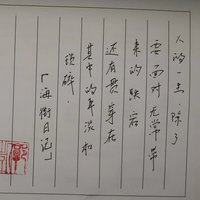 人的一生 除了
要面对无常带
来的跌宕
还有贯穿在
其中的平淡和
琐碎.
「海街日记」